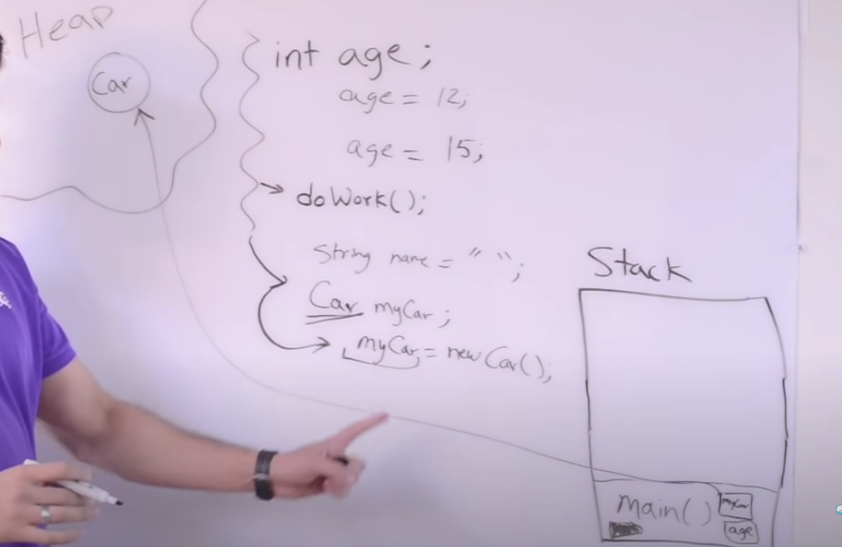 Heap
Car
int age;
age = 12;
age = 15;
doWork();
String name = " ";
Car myCar;
myCar = new Car();
Stack
main()
myCar
age